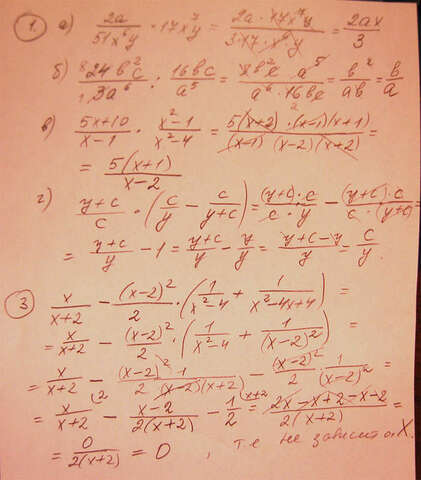 1. а) 2a/(51x⁶y) · 17x⁷y = (2a · 17x⁷y)/(3·17·x⁶y) = 2ax/3
б) 24b²c/(3a⁶) : 16bc/a⁵ = (8b²c · a⁵)/(a⁶ · 16bc) = b²/(ab) = b/a
в) (5x+10)/(x-1) · (x²-1)/(x²-4) = (5(x+2) · (x-1)(x+1))/((x-1)(x-2)(x+2)) =
= 5(x+1)/(x-2)
г) (y+c)/c · (c/y - c/(y+c)) = ((y+c)·c)/(c·y) - ((y+c)·c)/(c·(y+c)) =
= (y+c)/y - 1 = (y+c)/y - y/y = (y+c-y)/y = c/y.
3 x/(x+2) - (x-2)²/2 · (1/(x²-4) + 1/(x²-4x+4)) =
= x/(x+2) - (x-2)²/2 · (1/(x²-4) + 1/(x-2)²) =
= x/(x+2) - (x-2)²/2 · 1/((x-2)(x+2)) - (x-2)²/2 · 1/(x-2)² =
= x/(x+2) - (x-2)/(2(x+2)) - 1/2 = (2x-x+2-x-2)/(2(x+2)) =
= 0/(2(x+2)) = 0, т.е не зависит от x.